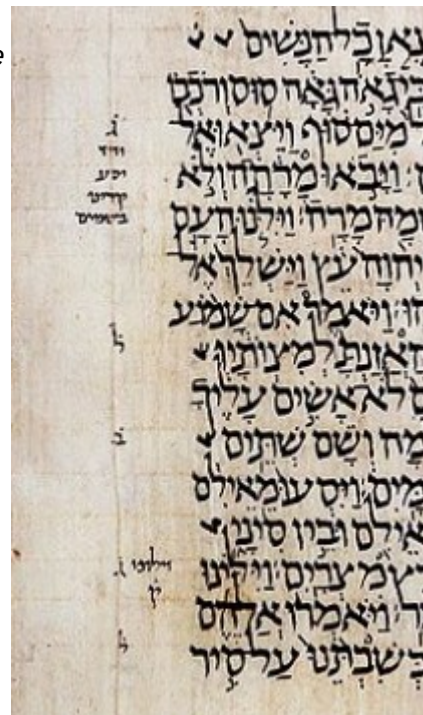 צֶאןָ כָל הַנָּשִׁים
כִּי גָאֹה גָּאָה סוּס וְרֹכְבוֹ
מִיַּם סוּף וַיֵּצְאוּ אֶל
וַיָּבֹאוּ מָרָתָה וְלֹא
מָרָה וַיִּלֹּנוּ הָעָם
יְהוָה עֵץ וַיַּשְׁלֵךְ אֶל
וַיֹּאמֶר אִם שָׁמֹעַ
הַאֲזַנְתָּ לְמִצְוֺתָיו
לֹא אָשִׂים עָלֶיךָ
מָה וְשָׁם שְׁתֵּים
מַיִם וַיִּסְעוּ מֵאֵילִם
אֵילִם וּבֵין סִינָי
רֶץ מִצְרַיִם וַיִּלִּינוּ
וַיֹּאמְרוּ אֲלֵהֶם
בְּשִׁבְתֵּנוּ עַל סִיר
ג
וחד
בשמים
ל
ב
וילונו ג
ק
ל